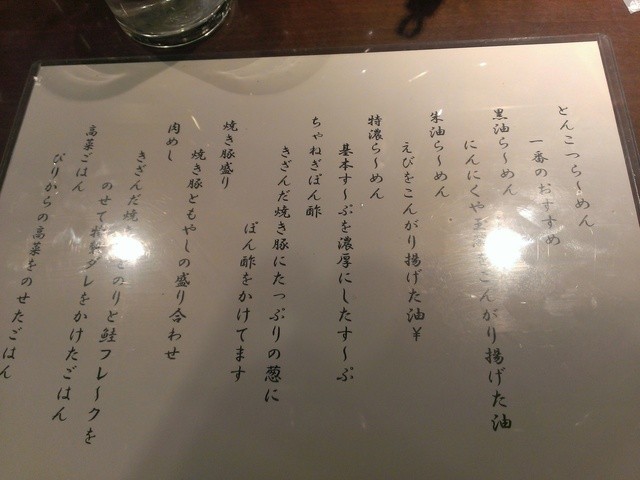 とんこつら〜めん
一番のおすすめ
黒油ら〜めん
にんにくや こんがり揚げた油
朱油ら〜めん
えびをこんがり揚げた油¥
特濃ら〜めん
基本す〜ぷを濃厚にしたす〜ぷ
ちゃねぎぽん酢
きざんだ焼き豚にたっぷりの葱に
ぽん酢をかけてます
焼き豚盛り
焼き豚ともやしの盛り合わせ
肉めし
きざんだ焼き のりと鮭フレークを
のせて タレをかけたごはん
高菜ごはん
ぴりからの高菜をのせたごはん